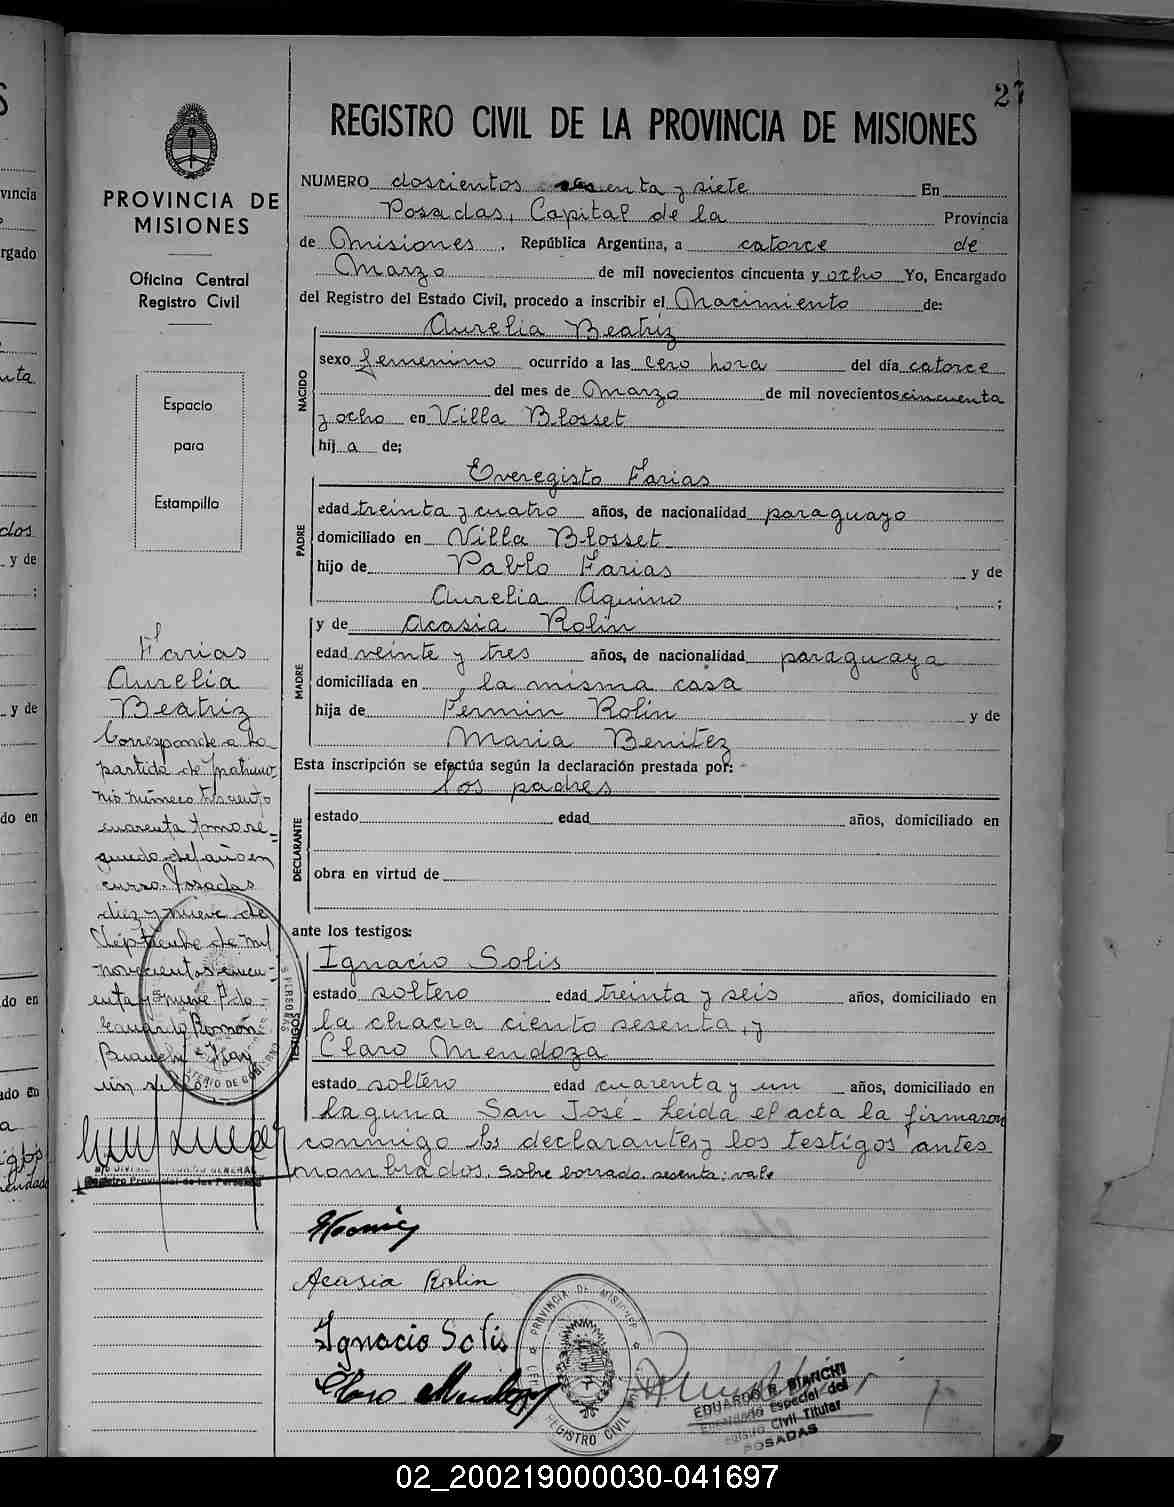 27
REGISTRO CIVIL DE LA PROVINCIA DE MISIONES
PROVINCIA DE
MISIONES
Oficina Central
Registro Civil
Espacio
para
Estampilla
NUMERO doscientos sesenta y siete En
Posadas, Capital de la Provincia
de Misiones, República Argentina, a catorce de
Marzo de mil novecientos cincuenta y ocho Yo, Encargado
del Registro del Estado Civil, procedo a inscribir el Nacimiento de:
NACIDO
Aurelia Beatriz
sexo femenino ocurrido a las cero hora del día catorce
del mes de Marzo de mil novecientos cincuenta
y ocho en Villa Blosset
hij a de;
PADRE
Everegisto Farias
edad treinta y cuatro años, de nacionalidad paraguayo
domiciliado en Villa Blosset
hijo de Pablo Farias y de
Aurelia Aquino ;
MADRE
y de Acasia Rolin
edad veinte y tres años, de nacionalidad paraguaya
domiciliada en la misma casa
hija de Fermin Rolin y de
Maria Benitez
Esta inscripción se efectúa según la declaración prestada por:
los padres
DECLARANTE
estado edad años, domiciliado en
obra en virtud de
ante los testigos:
TESTIGOS
Ignacio Solis
estado soltero edad treinta y seis años, domiciliado en
la chacra ciento sesenta, y
Claro Mendoza
estado soltero edad cuarenta y un años, domiciliado en
Laguna San José - Leida el acta la firmaron
conmigo los declarantes y los testigos antes
nombrados. Sobre borrado: sesenta: vale
Acasia Rolin
Ignacio Solis
Claro Mendoza
PROVINCIA DE MISIONES
REGISTRO CIVIL
EDUARDO R. BIANCHI
Encargado Especial del
Registro Civil Titular
POSADAS
Farias
Aurelia
Beatriz
Corresponde a la
partida de matrimo
nio número trescientos
cuarenta tomo se=
gundo del año en
curso. Posadas
diez y nueve de
Septiembre de mil
novecientos cincu-
enta y nueve Fdo-
Eduardo Ramón
Bianchi = Hay
un sello.
MINISTERIO DE GOBIERNO
Registro Provincial de las Personas
02_200219000030-041697